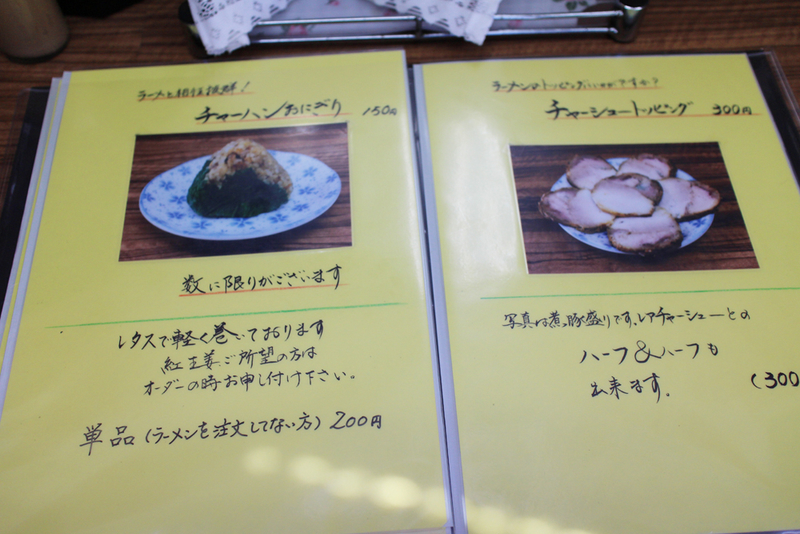 ラーメンと相性抜群！
チャーハンおにぎり 150円
数に限りがございます
レタスで軽く巻いております
紅生姜ご所望の方は
オーダーの時お申し付け下さい。
単品（ラーメンを注文してない方）200円
ラーメンのトッピングにいかがですか？
チャーシュートッピング 300円
写真は煮豚盛りです。レアチャーシューとの
ハーフ&ハーフも
出来ます。
(300